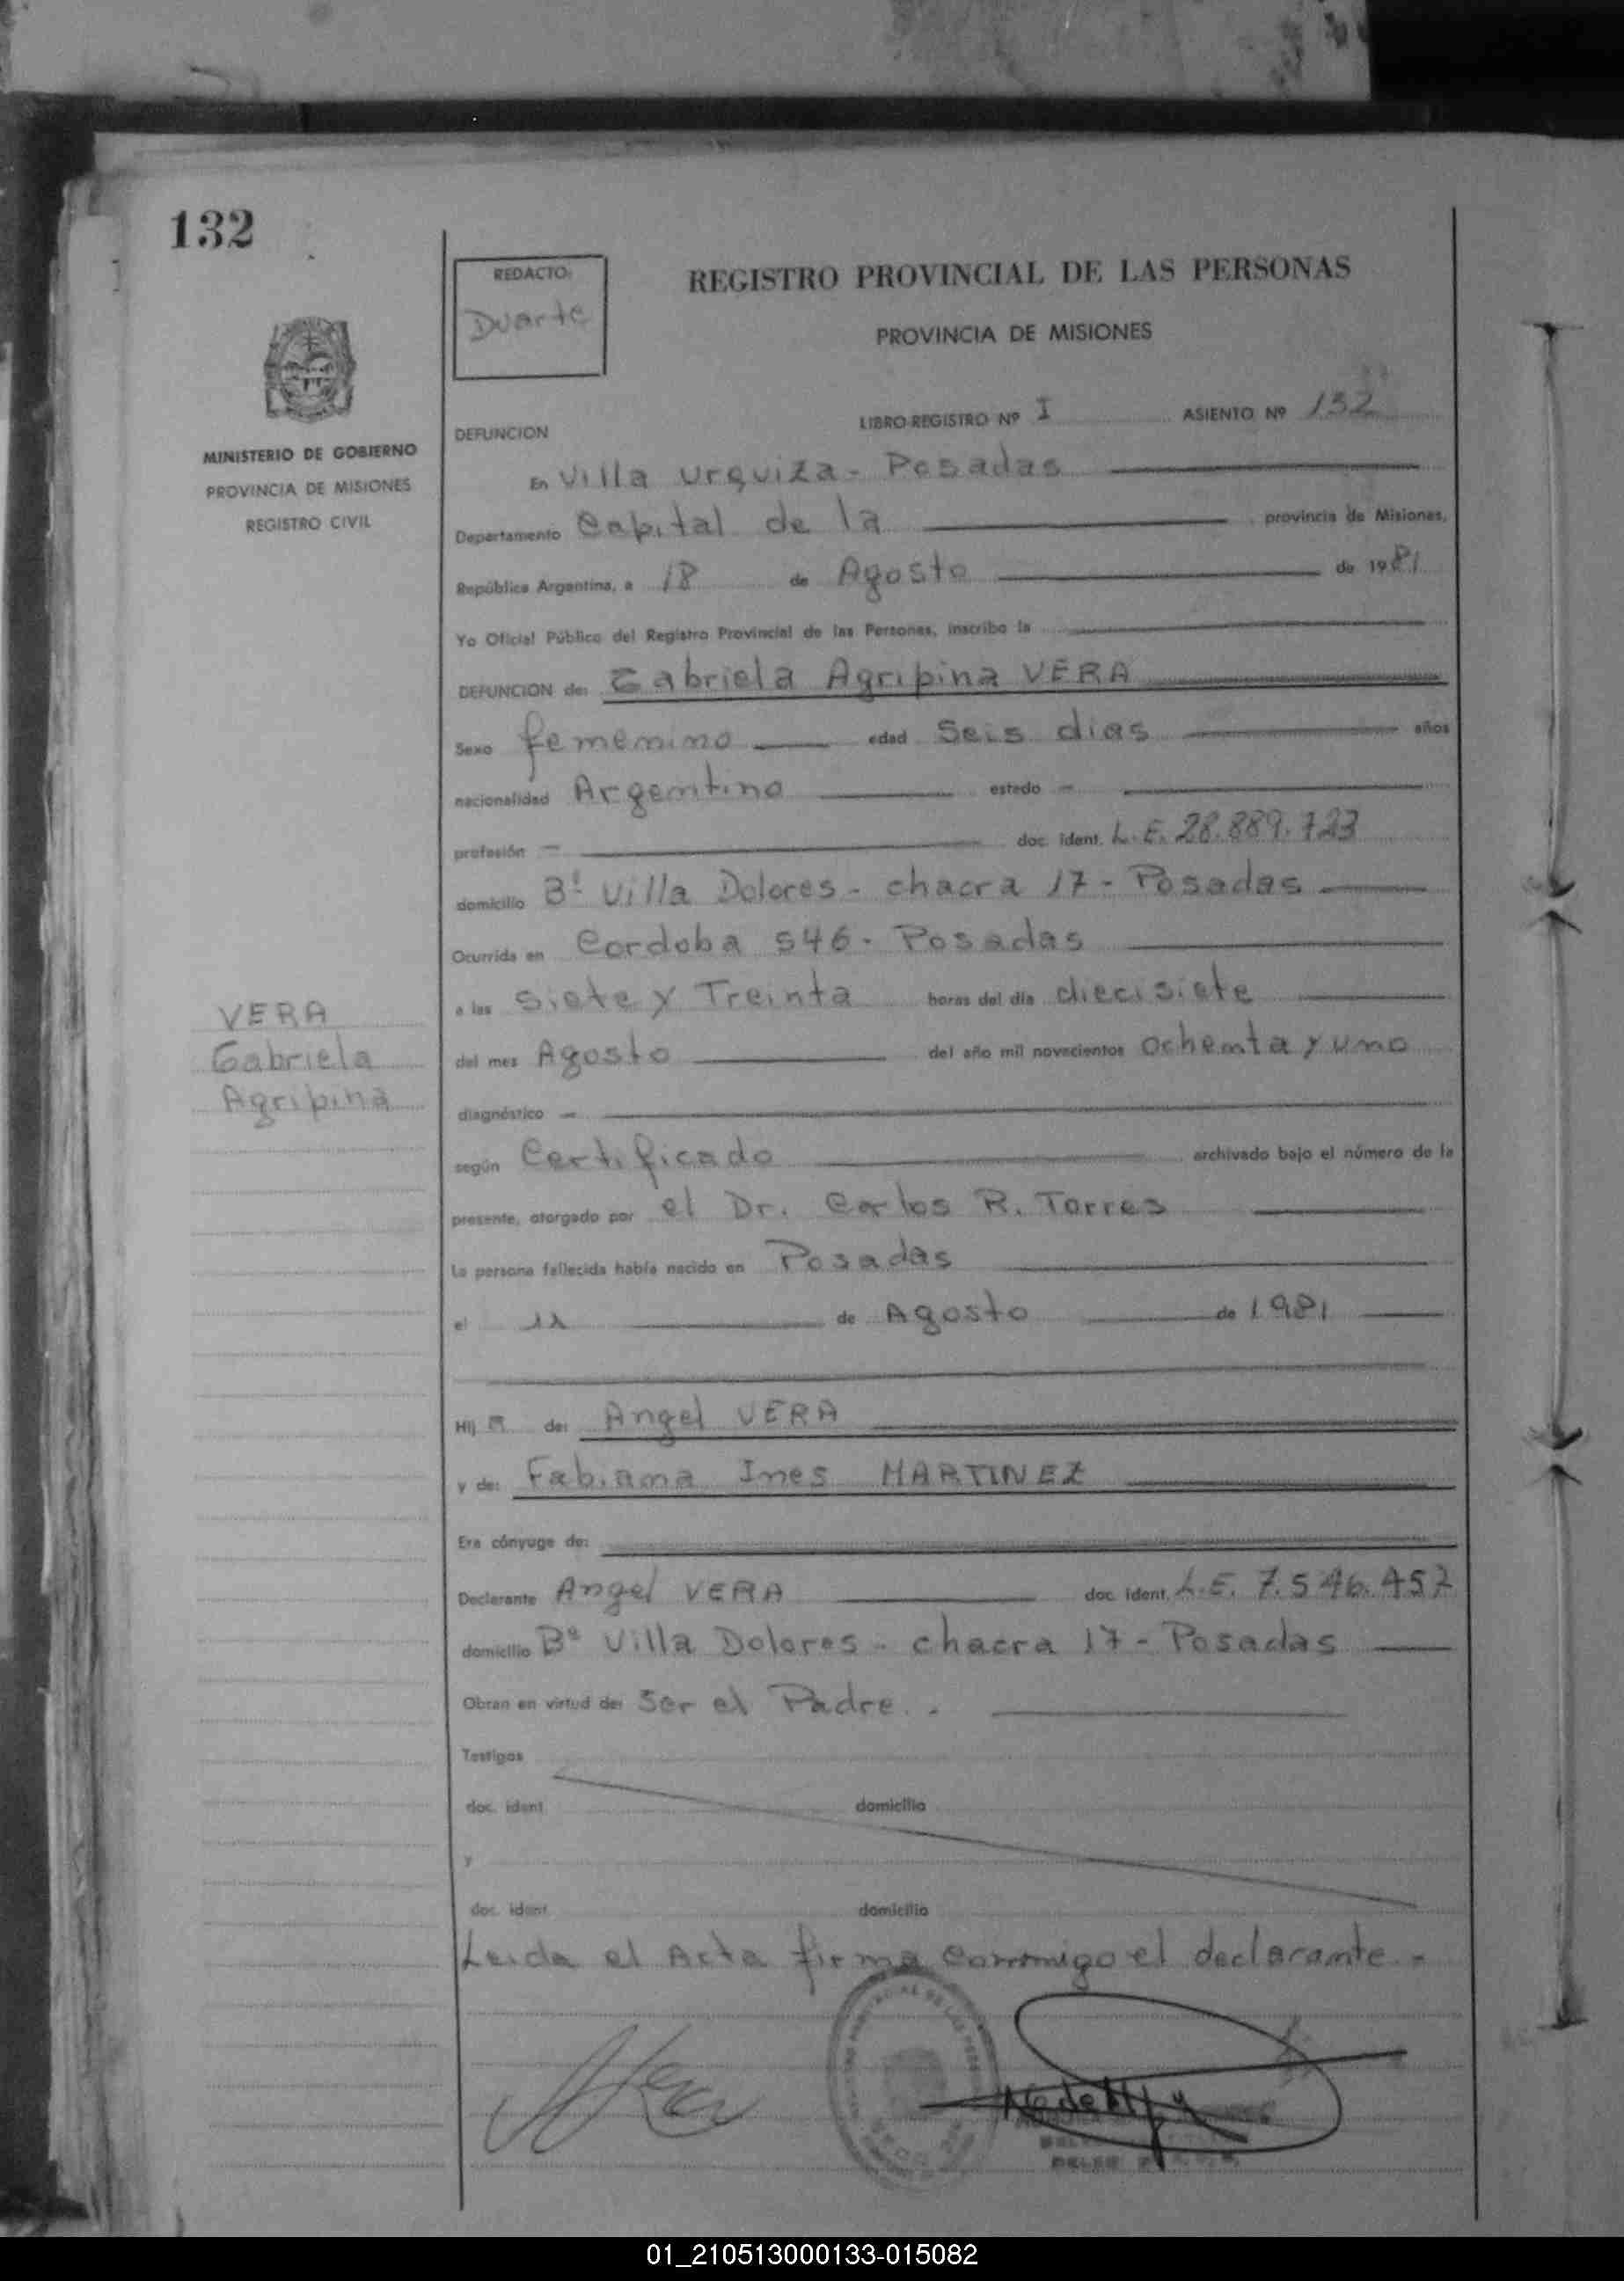 132
REDACTO:
Duarte
REGISTRO PROVINCIAL DE LAS PERSONAS
PROVINCIA DE MISIONES
MINISTERIO DE GOBIERNO
PROVINCIA DE MISIONES
REGISTRO CIVIL
LIBRO-REGISTRO Nº I ASIENTO Nº 132
DEFUNCION
En Villa Urquiza - Posadas
Departamento Capital de la provincia de Misiones,
República Argentina, a 18 de Agosto de 1981
Yo Oficial Público del Registro Provincial de las Personas, inscribo la
DEFUNCION de: Gabriela Agripina VERA
Sexo femenino edad Seis dias años
nacionalidad Argentina estado -
profesión - doc. ident. L.E. 28.889.723
domicilio Bº Villa Dolores - chacra 17 - Posadas
Ocurrida en Cordoba 546 - Posadas
a las Siete y Treinta horas del día diecisiete
del mes Agosto del año mil novecientos Ochenta y uno
VERA
Gabriela
Agripina
diagnóstico -
según Certificado archivado bajo el número de la
presente, otorgado por el Dr. Carlos R. Torres
La persona fallecida había nacido en Posadas
el 11 de Agosto de 1981
Hij a de: Angel VERA
y de: Fabiana Ines MARTINEZ
Era cónyuge de:
Declarante Angel VERA doc. ident. L.E. 7.546.457
domicilio Bº Villa Dolores - chacra 17 - Posadas
Obran en virtud de: Ser el Padre. -
Testigos
doc. ident. domicilio
y
doc. ident. domicilio
Leida el Acta firma conmigo el declarante. -
01_210513000133-015082